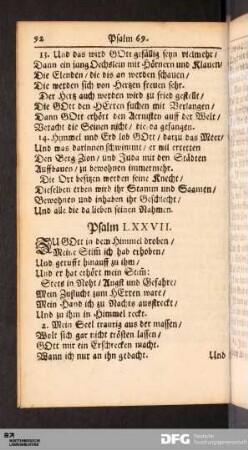 92 Psalm 69.
13. Und das wird GOtt gefällig seyn vielmehr/
Dann ein jung Oechslein mit Hörnern und Klauen/
Die Elenden/ die dis an werden schauen/
Die werden sich von Hertzen freuen sehr.
Der Hertz auch werden wird zu fried gestellt/
Die GOtt den HErren suchen mit Verlangen/
Dann GOtt erhört den Aermsten auff der Welt/
Veracht die Seinen nicht/ die da gefangen.
14. Himmel und Erd lob GOtt/ darzu das Meer/
Und was darinnen schwimmt/ er wil erretten
Den Berg Zion/ und Juda mit den Städten
Aufbauen/ zu bewohnen immermehr.
Die Ort besitzen werden seine Knecht/
Dieselben erben wird ihr Stamm und Saamen/
Bewohnen und inhaben ihr Geschlecht/
Und alle die da lieben seinen Nahmen.
Psalm LXXVII.
ZU GOtt in dem Himmel droben/
Meine Stim̃ ich hab erhoben/
Und gerufft hinauff zu ihm/
Und er hat erhört mein Stim̃:
Stets in Noht/ Angst und Gefahre/
Mein Zuflucht zum HErren ware/
Mein Hand ich zu Nachts ausstreckt/
Und zu ihm in Himmel reckt.
2. Mein Seel traurig aus der massen/
Wolt sich gar nicht trösten lassen/
GOtt mir ein Erschrecken macht.
Wann ich nur an ihn gedacht.
Und
DFG Deutsche
Forschungsgemeinschaft